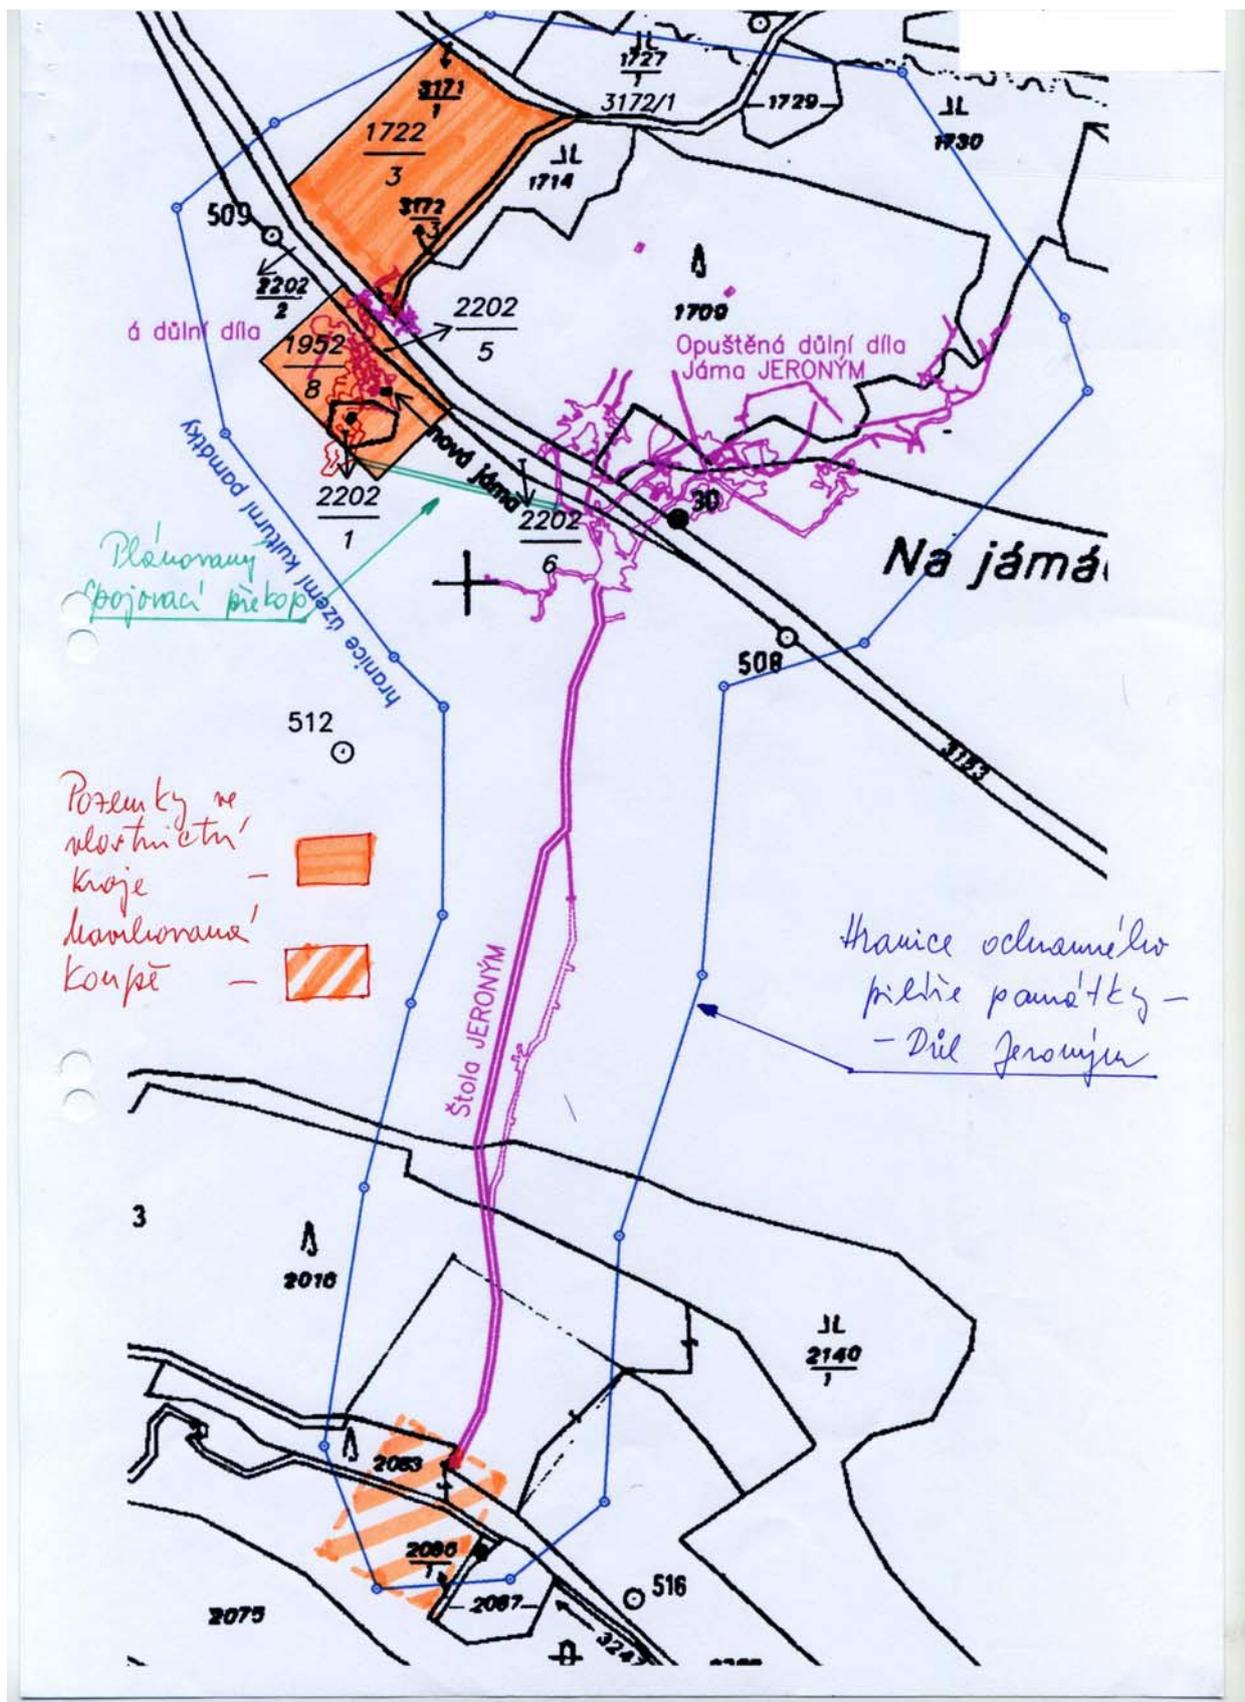 1727
1
3172/1
1729
1730
3171
1
1722
3
1714
3172
3
509
2202
2
1709
2202
5
á důlní díla
1952
8
Opuštěná důlní díla
Jáma JERONÝM
nová jáma
2202
1
2202
6
30
Na jámá
Plánovaný
spojovací překop
hranice území kulturní památky
508
512
3153
Pozemky ve
vlastnictví
kraje –
Navrhovaná
koupě –
Hranice ochranného
pilíře památky –
– Důl Jeroným
Štola JERONÝM
3
2016
2140
1
2083
2086
1
2087
516
2075